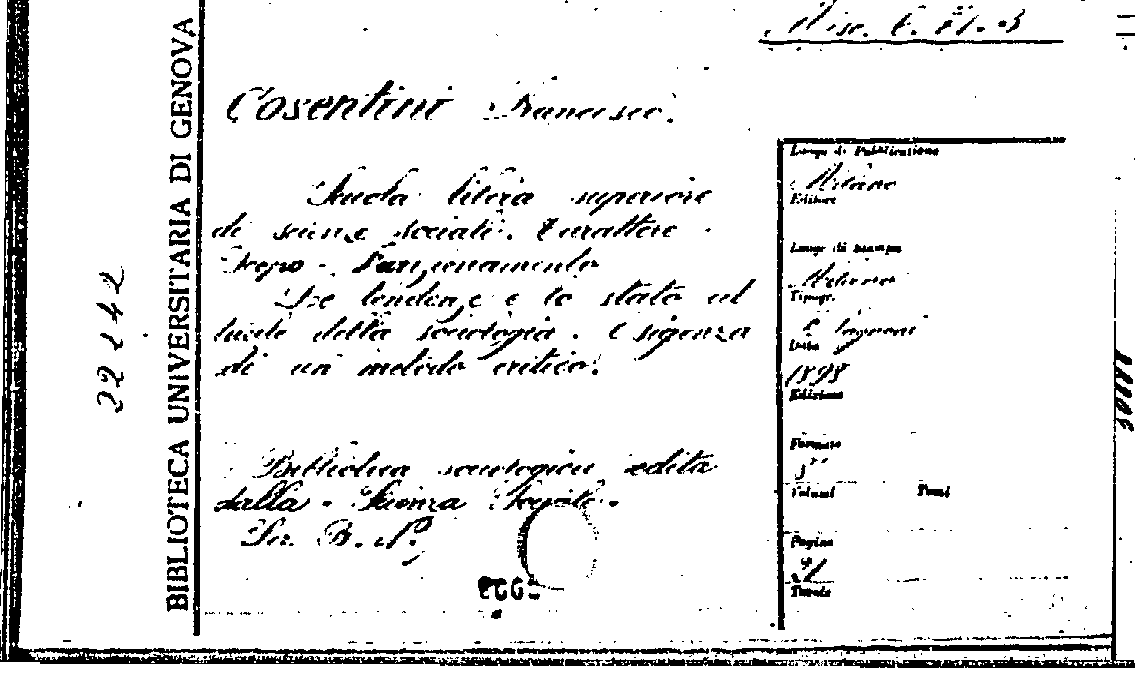 Misc.
Cosentini Francesco.
Scuola libera superiore
di scienze sociali. Carattere -
Scopo - Funzionamento
Le tendenze e lo stato at
tuale della sociologia. Esigenza
di un metodo critico.
Biblioteca sociologica edita
dalla - Scienza Sociale -
Ser. B.
BIBLIOTECA UNIVERSITARIA DI GENOVA
Luogo di Pubblicazione
Milano
Editore
Luogo di stampa
Tipogr.
Data
1898
Edizione
Formato
Volumi Tomi
Pagine
Tavole